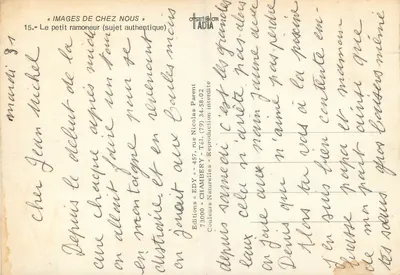 « IMAGES DE CHEZ NOUS »
15.- Le petit ramoneur (sujet authentique)
TADIA
Editions « EDY » - 457, rue Nicolas Parent
73000 - CHAMBÉRY - Tél. (79) 34-58-02
Couleurs Naturelles - Reproduction interdite
mardi 31
cher Jean Michel
Depuis le début de la
que chaque après midi
on allait faire un tour
en montagne pour se
et en revenant
on jouait aux boules mais
depuis samedi c'est les grandes
eaux cela n'arrête pas alors
on joue aux nain jaune avec
Denis qui n'aime pas perdre
Alors tu vas à la piscine
J'en suis bien contente em-
brasse papa et maman
de ma part ainsi que
tes sœurs gros bisous même